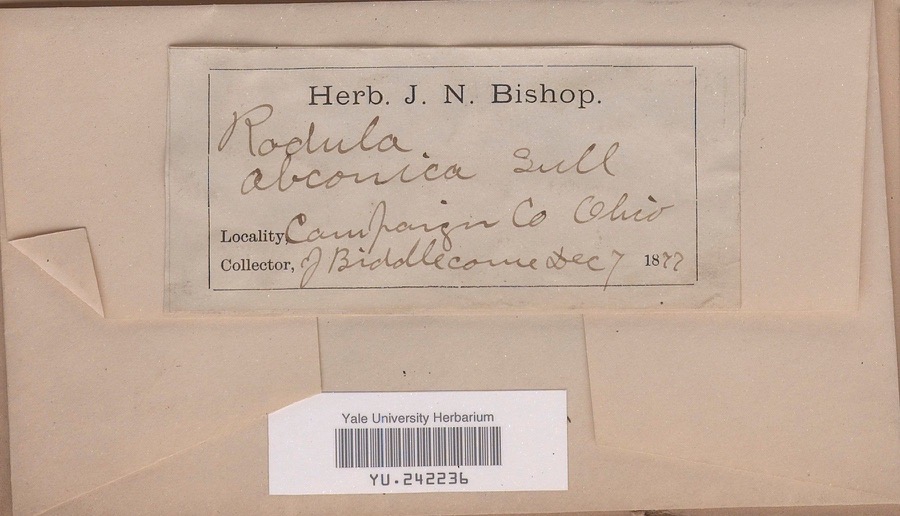 Herb. J. N. Bishop.
Radula
abconica Sull
Locality, Campaign Co Ohio
Collector, J Biddlecome Dec 7 1877
Yale University Herbarium
YU.242236